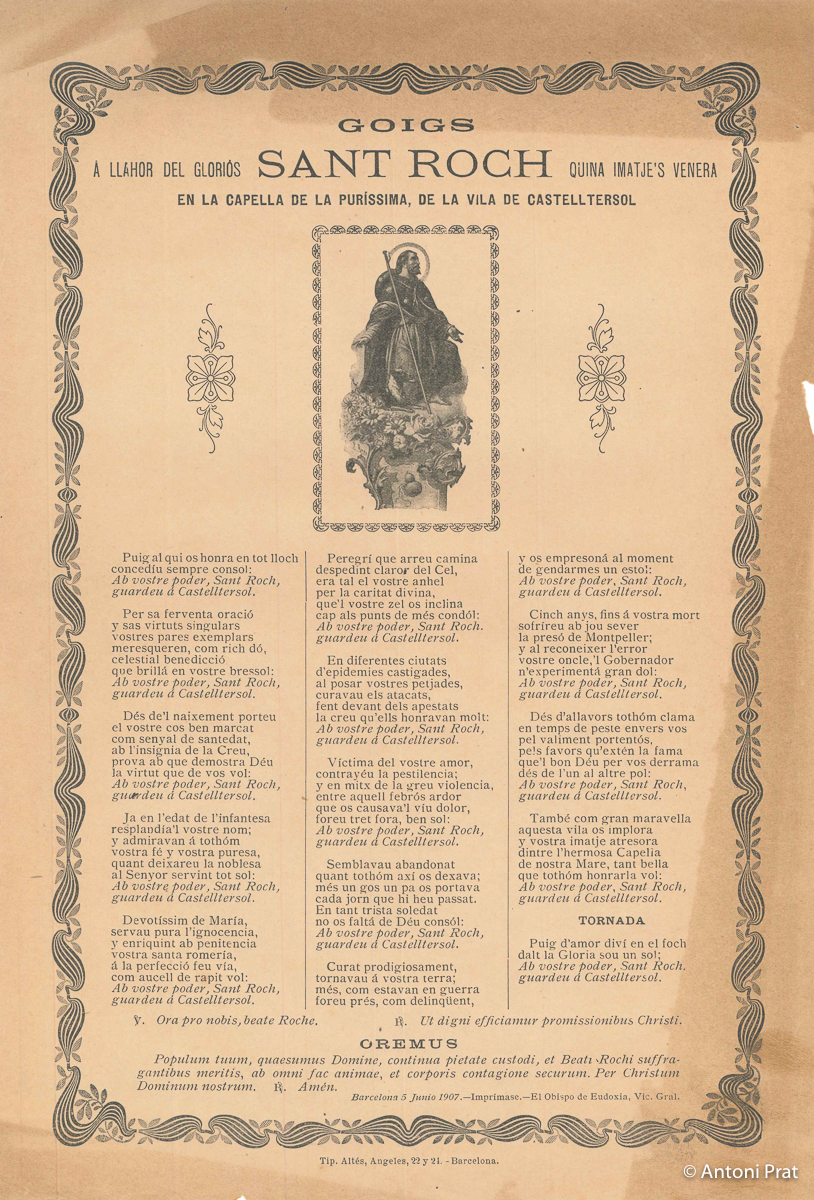 GOIGS
Á LLAHOR DEL GLORIÓS SANT ROCH QUINA IMATJE'S VENERA
EN LA CAPELLA DE LA PURÍSSIMA, DE LA VILA DE CASTELLTERSOL
Puig al qui os honra en tot lloch
concedíu sempre consol:
Ab vostre poder, Sant Roch,
guardeu á Castelltersol.
Per sa ferventa oració
y sas virtuts singulars
vostres pares exemplars
meresqueren, com rich dó,
celestial benedicció
que brillá en vostre bressol:
Ab vostre poder, Sant Roch,
guardeu á Castelltersol.
Dés de'l naixement porteu
el vostre cos ben marcat
com senyal de santedat,
ab l'insignia de la Creu,
prova ab que demostra Déu
la virtut que de vos vol:
Ab vostre poder, Sant Roch,
guardeu á Castelltersol.
Ja en l'edat de l'infantesa
resplandía'l vostre nom;
y admiravan á tothóm
vostra fé y vostra puresa,
quant deixareu la noblesa
al Senyor servint tot sol:
Ab vostre poder, Sant Roch,
guardeu á Castelltersol.
Devotíssim de María,
servau pura l'ignocencia,
y enriquint ab penitencia
vostra santa romería,
á la perfecció feu vía,
com aucell de rapit vol:
Ab vostre poder, Sant Roch,
guardeu á Castelltersol.
Peregrí que arreu camina
despedint claror del Cel,
era tal el vostre anhel
per la caritat divina,
que'l vostre zel os inclina
cap als punts de més condól:
Ab vostre poder, Sant Roch.
guardeu á Castelltersol.
En diferentes ciutats
d'epidemies castigades,
al posar vostres petjades,
curavau els atacats,
fent devant dels apestats
la creu qu'ells honravan molt:
Ab vostre poder, Sant Roch,
guardeu á Castelltersol.
Víctima del vostre amor,
contrayéu la pestilencia;
y en mitx de la greu violencia,
entre aquell febrós ardor
que os causava'l víu dolor,
foreu tret fora, ben sol:
Ab vostre poder, Sant Roch,
guardeu á Castelltersol.
Semblavau abandonat
quant tothóm axí os dexava;
més un gos un pa os portava
cada jorn que hi heu passat.
En tant trista soledat
no os faltá de Déu consól:
Ab vostre poder, Sant Roch,
guardeu á Castelltersol.
Curat prodigiosament,
tornavau á vostra terra;
més, com estavan en guerra
foreu prés, com delinqüent,
y os empresoná al moment
de gendarmes un estol:
Ab vostre poder, Sant Roch,
guardeu á Castelltersol.
Cinch anys, fins á vostra mort
sofríreu ab jou sever
la presó de Montpeller;
y al reconeixer l'error
vostre oncle,'l Gobernador
n'experimentá gran dol:
Ab vostre poder, Sant Roch,
guardeu á Castelltersol.
Dés d'allavors tothóm clama
en temps de peste envers vos
pel valiment portentós,
pels favors qu'extén la fama
que'l bon Déu per vos derrama
dés de l'un al altre pol:
Ab vostre poder, Sant Roch,
guardeu á Castelltersol.
També com gran maravella
aquesta vila os implora
y vostra imatje atresora
dintre l'hermosa Capella
de nostra Mare, tant bella
que tothóm honrarla vol:
Ab vostre poder, Sant Roch,
guardeu á Castelltersol.
TORNADA
Puig d'amor diví en el foch
dalt la Gloria sou un sol;
Ab vostre poder, Sant Roch.
guardeu á Castelltersol.
℣. Ora pro nobis, beate Roche. ℟. Ut digni efficiamur promissionibus Christi.
OREMUS
Populum tuum, quaesumus Domine, continua pietate custodi, et Beati Rochi suffra-
gantibus meritis, ab omni fac animae, et corporis contagione securum. Per Christum
Dominum nostrum. ℟. Amén.
Barcelona 5 Junio 1907.—Imprímase.—El Obispo de Eudoxia, Vic. Gral.
Tip. Altés, Angeles, 22 y 24. - Barcelona.
© Antoni Prat